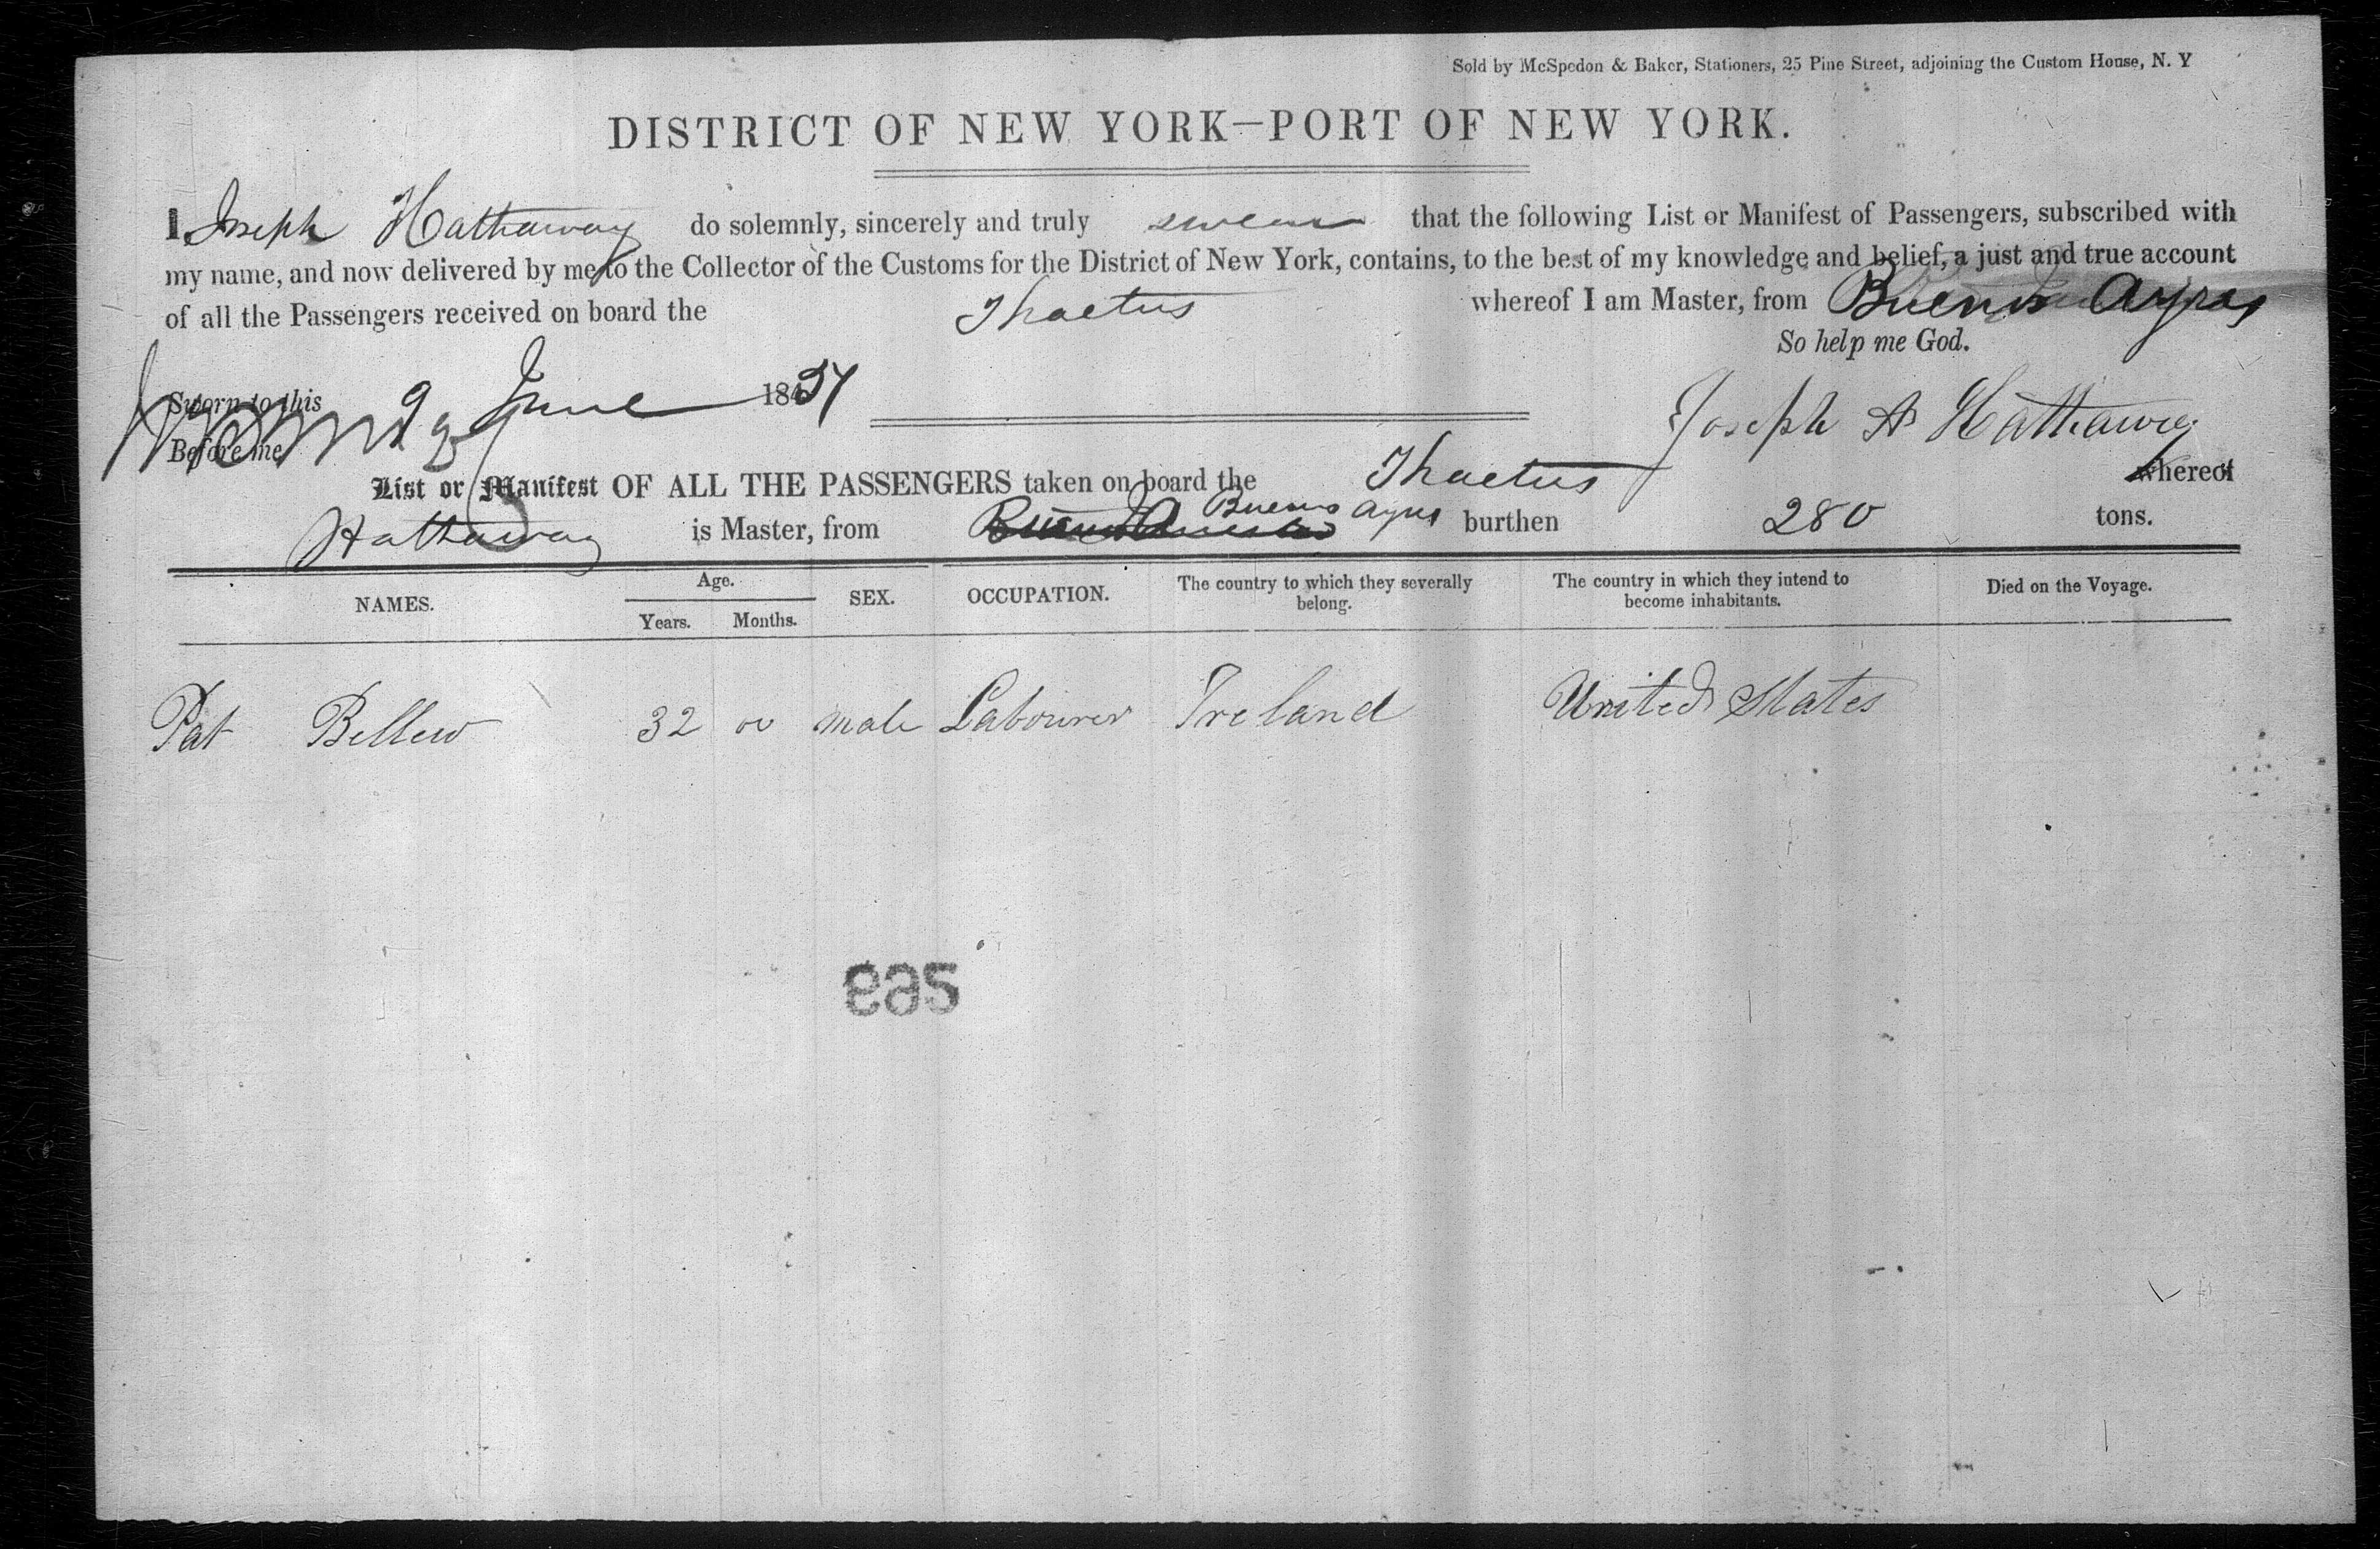 Sold by McSpedon & Baker, Stationers, 25 Pine Street, adjoining the Custom House, N. Y
DISTRICT OF NEW YORK—PORT OF NEW YORK.
I, Joseph Hathaway do solemnly, sincerely and truly swear that the following List or Manifest of Passengers, subscribed with
my name, and now delivered by me to the Collector of the Customs for the District of New York, contains, to the best of my knowledge and belief, a just and true account
of all the Passengers received on board the whereof I am Master, from Buenos Ayres
So help me God.
Sworn to this 9 June 1851
Joseph A Hathaway
Before me
List or Manifest OF ALL THE PASSENGERS taken on board the whereof
Hathaway is Master, from Buenos Ayres burthen 280 tons.
NAMES. Age. Years. Months. SEX. OCCUPATION. The country to which they severally belong. The country in which they intend to become inhabitants. Died on the Voyage.
Pat Bellew 32 00 male Labourer Ireland United States
569